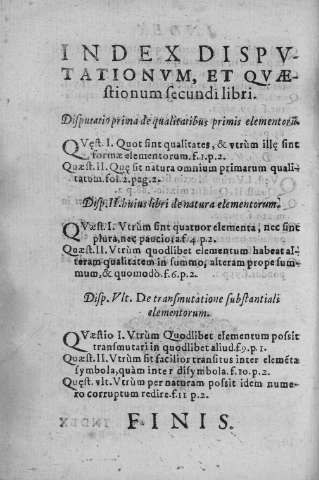 INDEX DISPV-
TATIONVM, ET QVÆ-
stionum secundi libri.
Disputatio prima de qualitatibus primis elementorū.
Quęst. I. Quot sint qualitates, & vtrùm illę sint
formæ elementorum. f. 1. p. 2.
Quæst. II. Quę sit natura omnium primarum quali-
tatum. fol. 2. pag. 2.
Disp. II. huius libri de natura elementorum.
Quæst. I. Vtrùm sint quatuor elementa, nec sint
plura, nec pauciora f. 4. p. 2.
Quæst. II. Vtrùm quodlibet elementum habeat al-
teram qualitatem in summo, alteram prope sum-
mum, & quomodò. f. 6. p. 2.
Disp. Vlt. De transmutatione substantiali
elementorum.
Quæstio I. Vtrùm Quodlibet elementum possit
transmutari in quodlibet aliud. f. 9. p. 1.
Quæst. II. Vtrùm sit facilior transitus inter elemēta
symbola, quàm inter disymbola. f. 10. p. 2.
Quęst. vlt. Vtrùm per naturam possit idem nume-
ro corruptum redire. f. 11 p. 2.
FINIS.